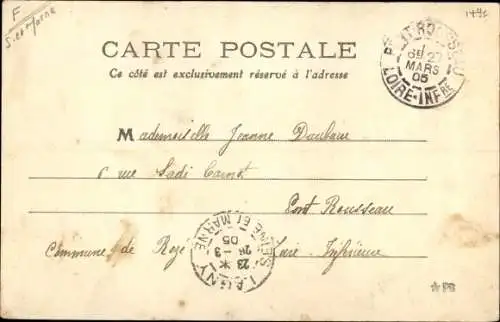 F
S. et Marne
CARTE POSTALE
Ce côté est exclusivement réservé à l'adresse
PONT ROUSSEAU
MARS
05
LOIRE-INFRE
Mademoiselle Jeanne
6 rue Sadi Carnot
Pont Rousseau
Commune de Rezé Loire Inférieure
LAGNY
23 * 26-3
05
SEINE ET MARNE